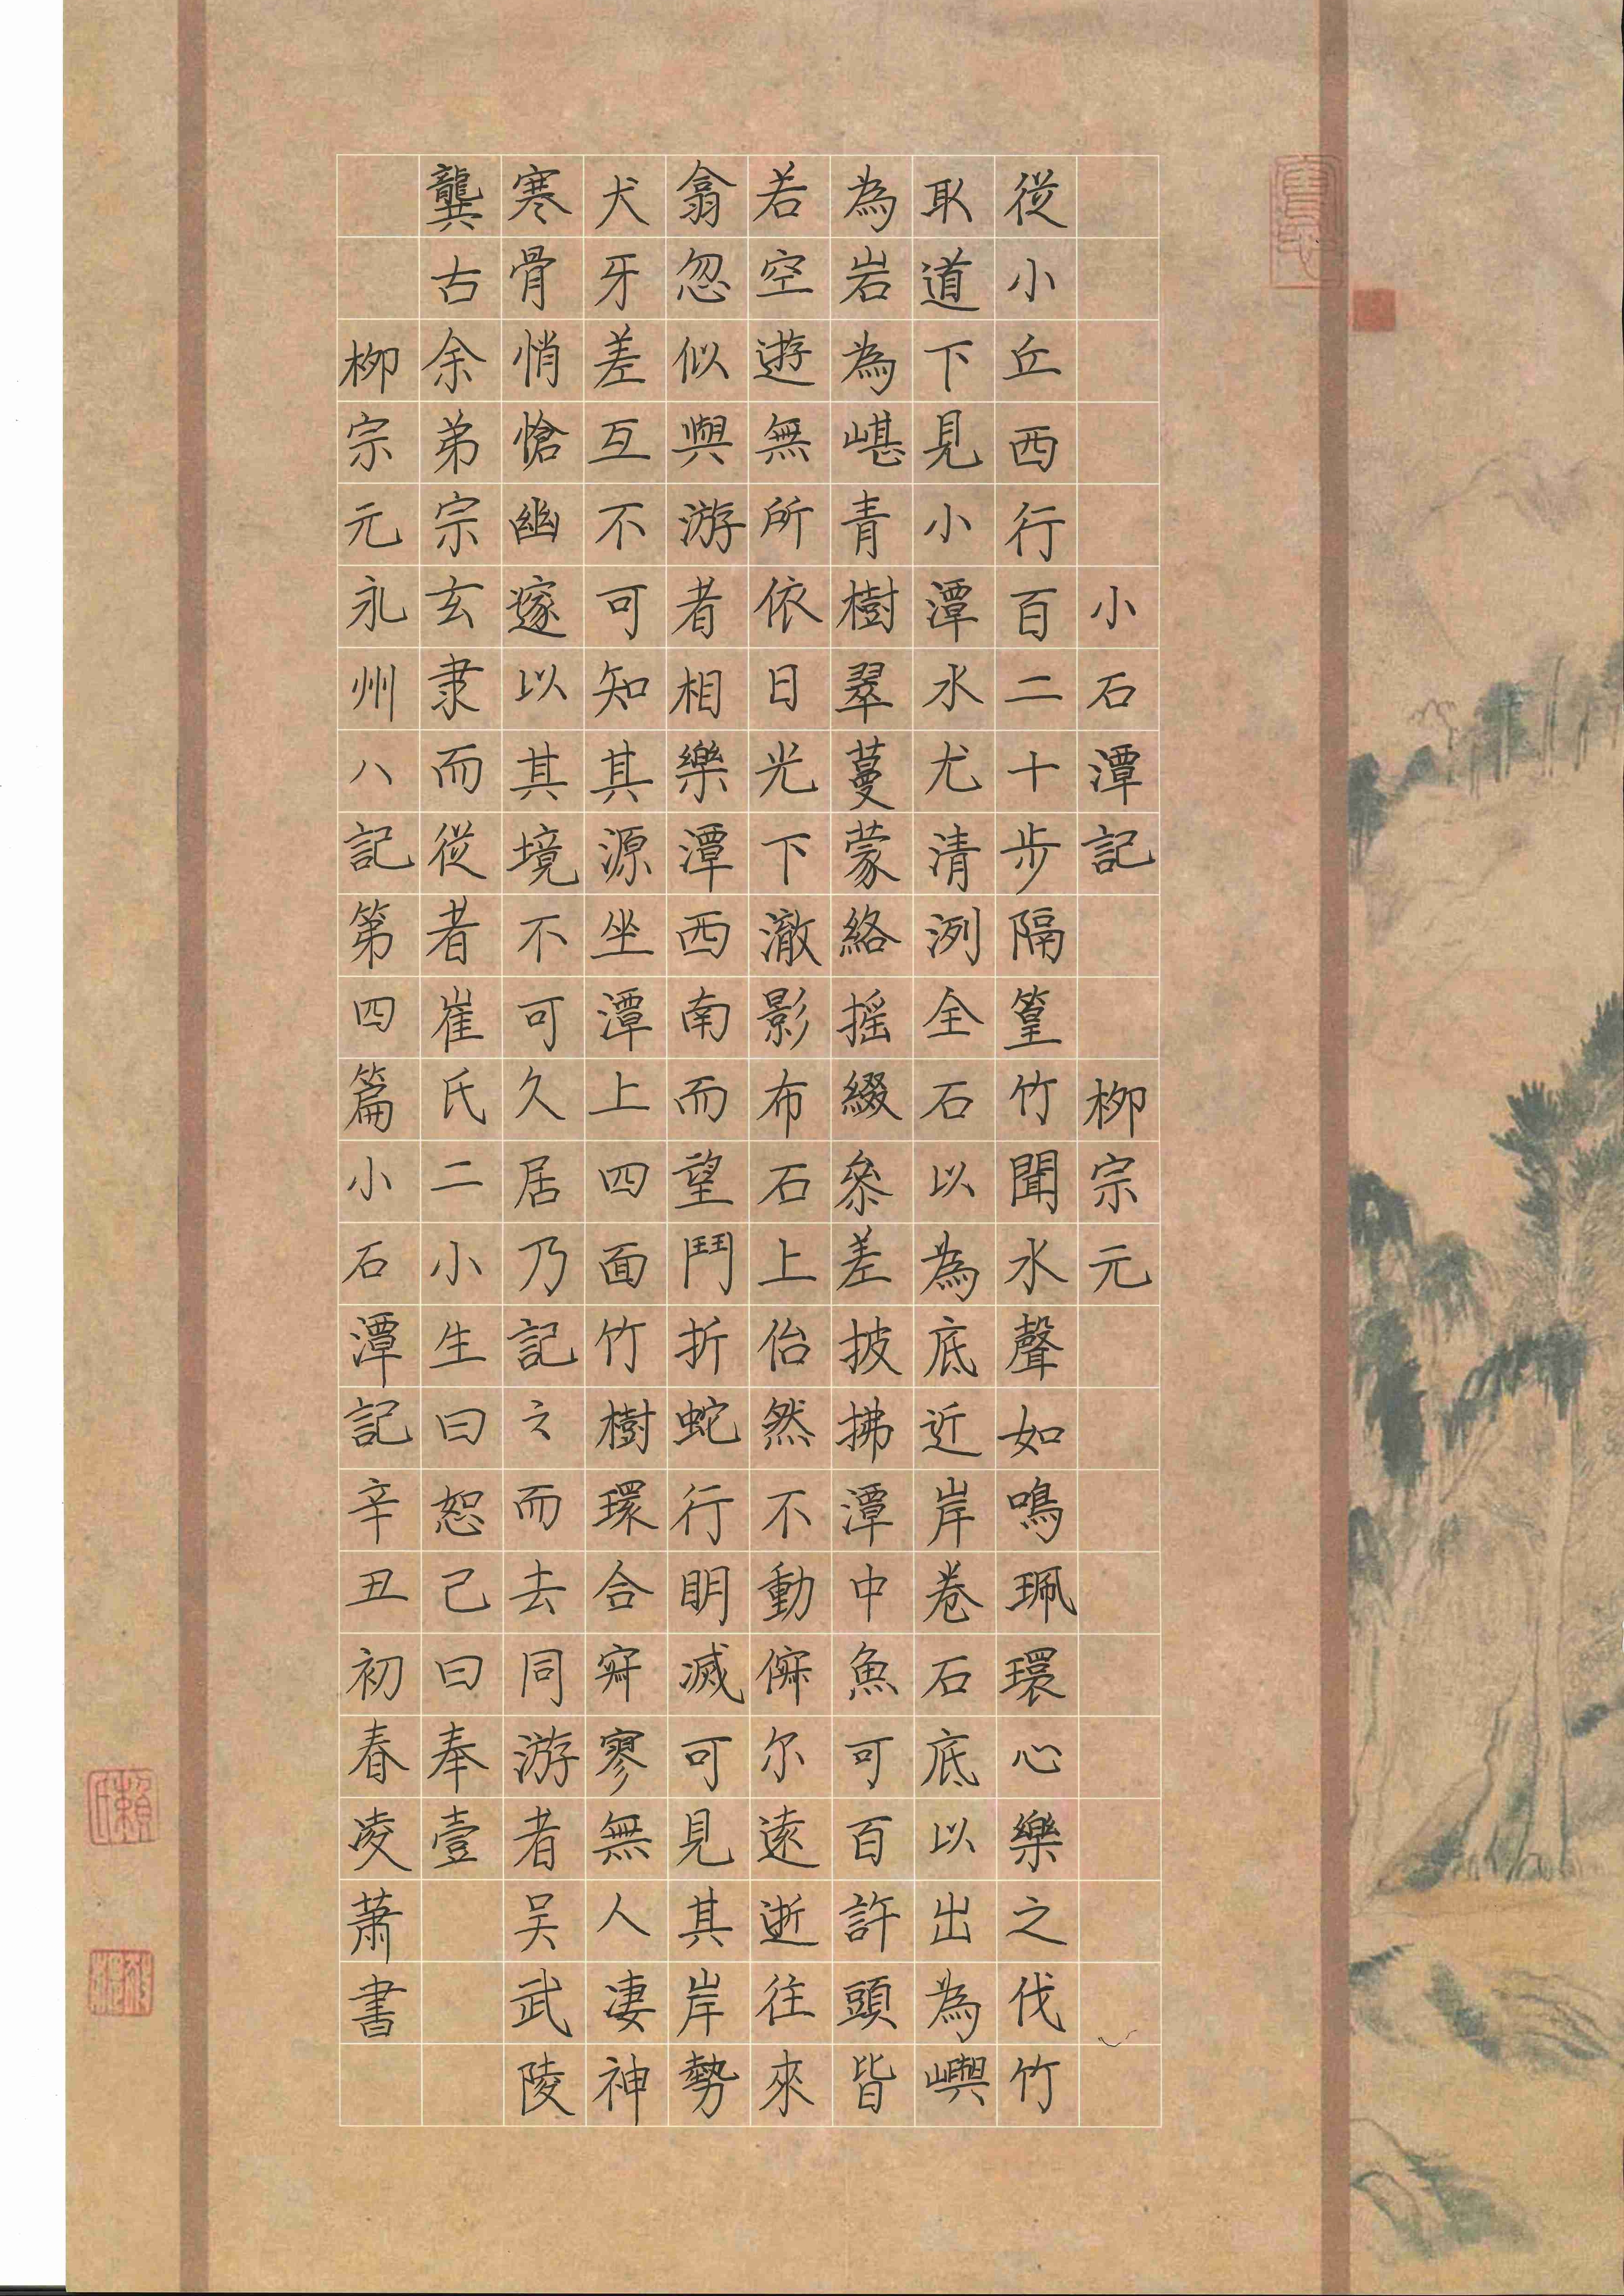 小石潭記 柳宗元
從小丘西行百二十步隔篁竹聞水聲如鳴珮環心樂之伐竹
取道下見小潭水尤清洌全石以為底近岸卷石底以出為嶼
為岩為嵁青樹翠蔓蒙絡摇綴參差披拂潭中魚可百許頭皆
若空遊無所依日光下澈影布石上佁然不動俯尔遠逝往來
翕忽似與游者相樂潭西南而望鬥折蛇行明滅可見其岸勢
犬牙差互不可知其源坐潭上四面竹樹環合寂寥無人凄神
寒骨悄愴幽邃以其境不可久居乃記之而去同游者吴武陵
龔古余弟宗玄隶而從者崔氏二小生曰恕己曰奉壹
柳宗元永州八記第四篇小石潭記辛丑初春凌萧書